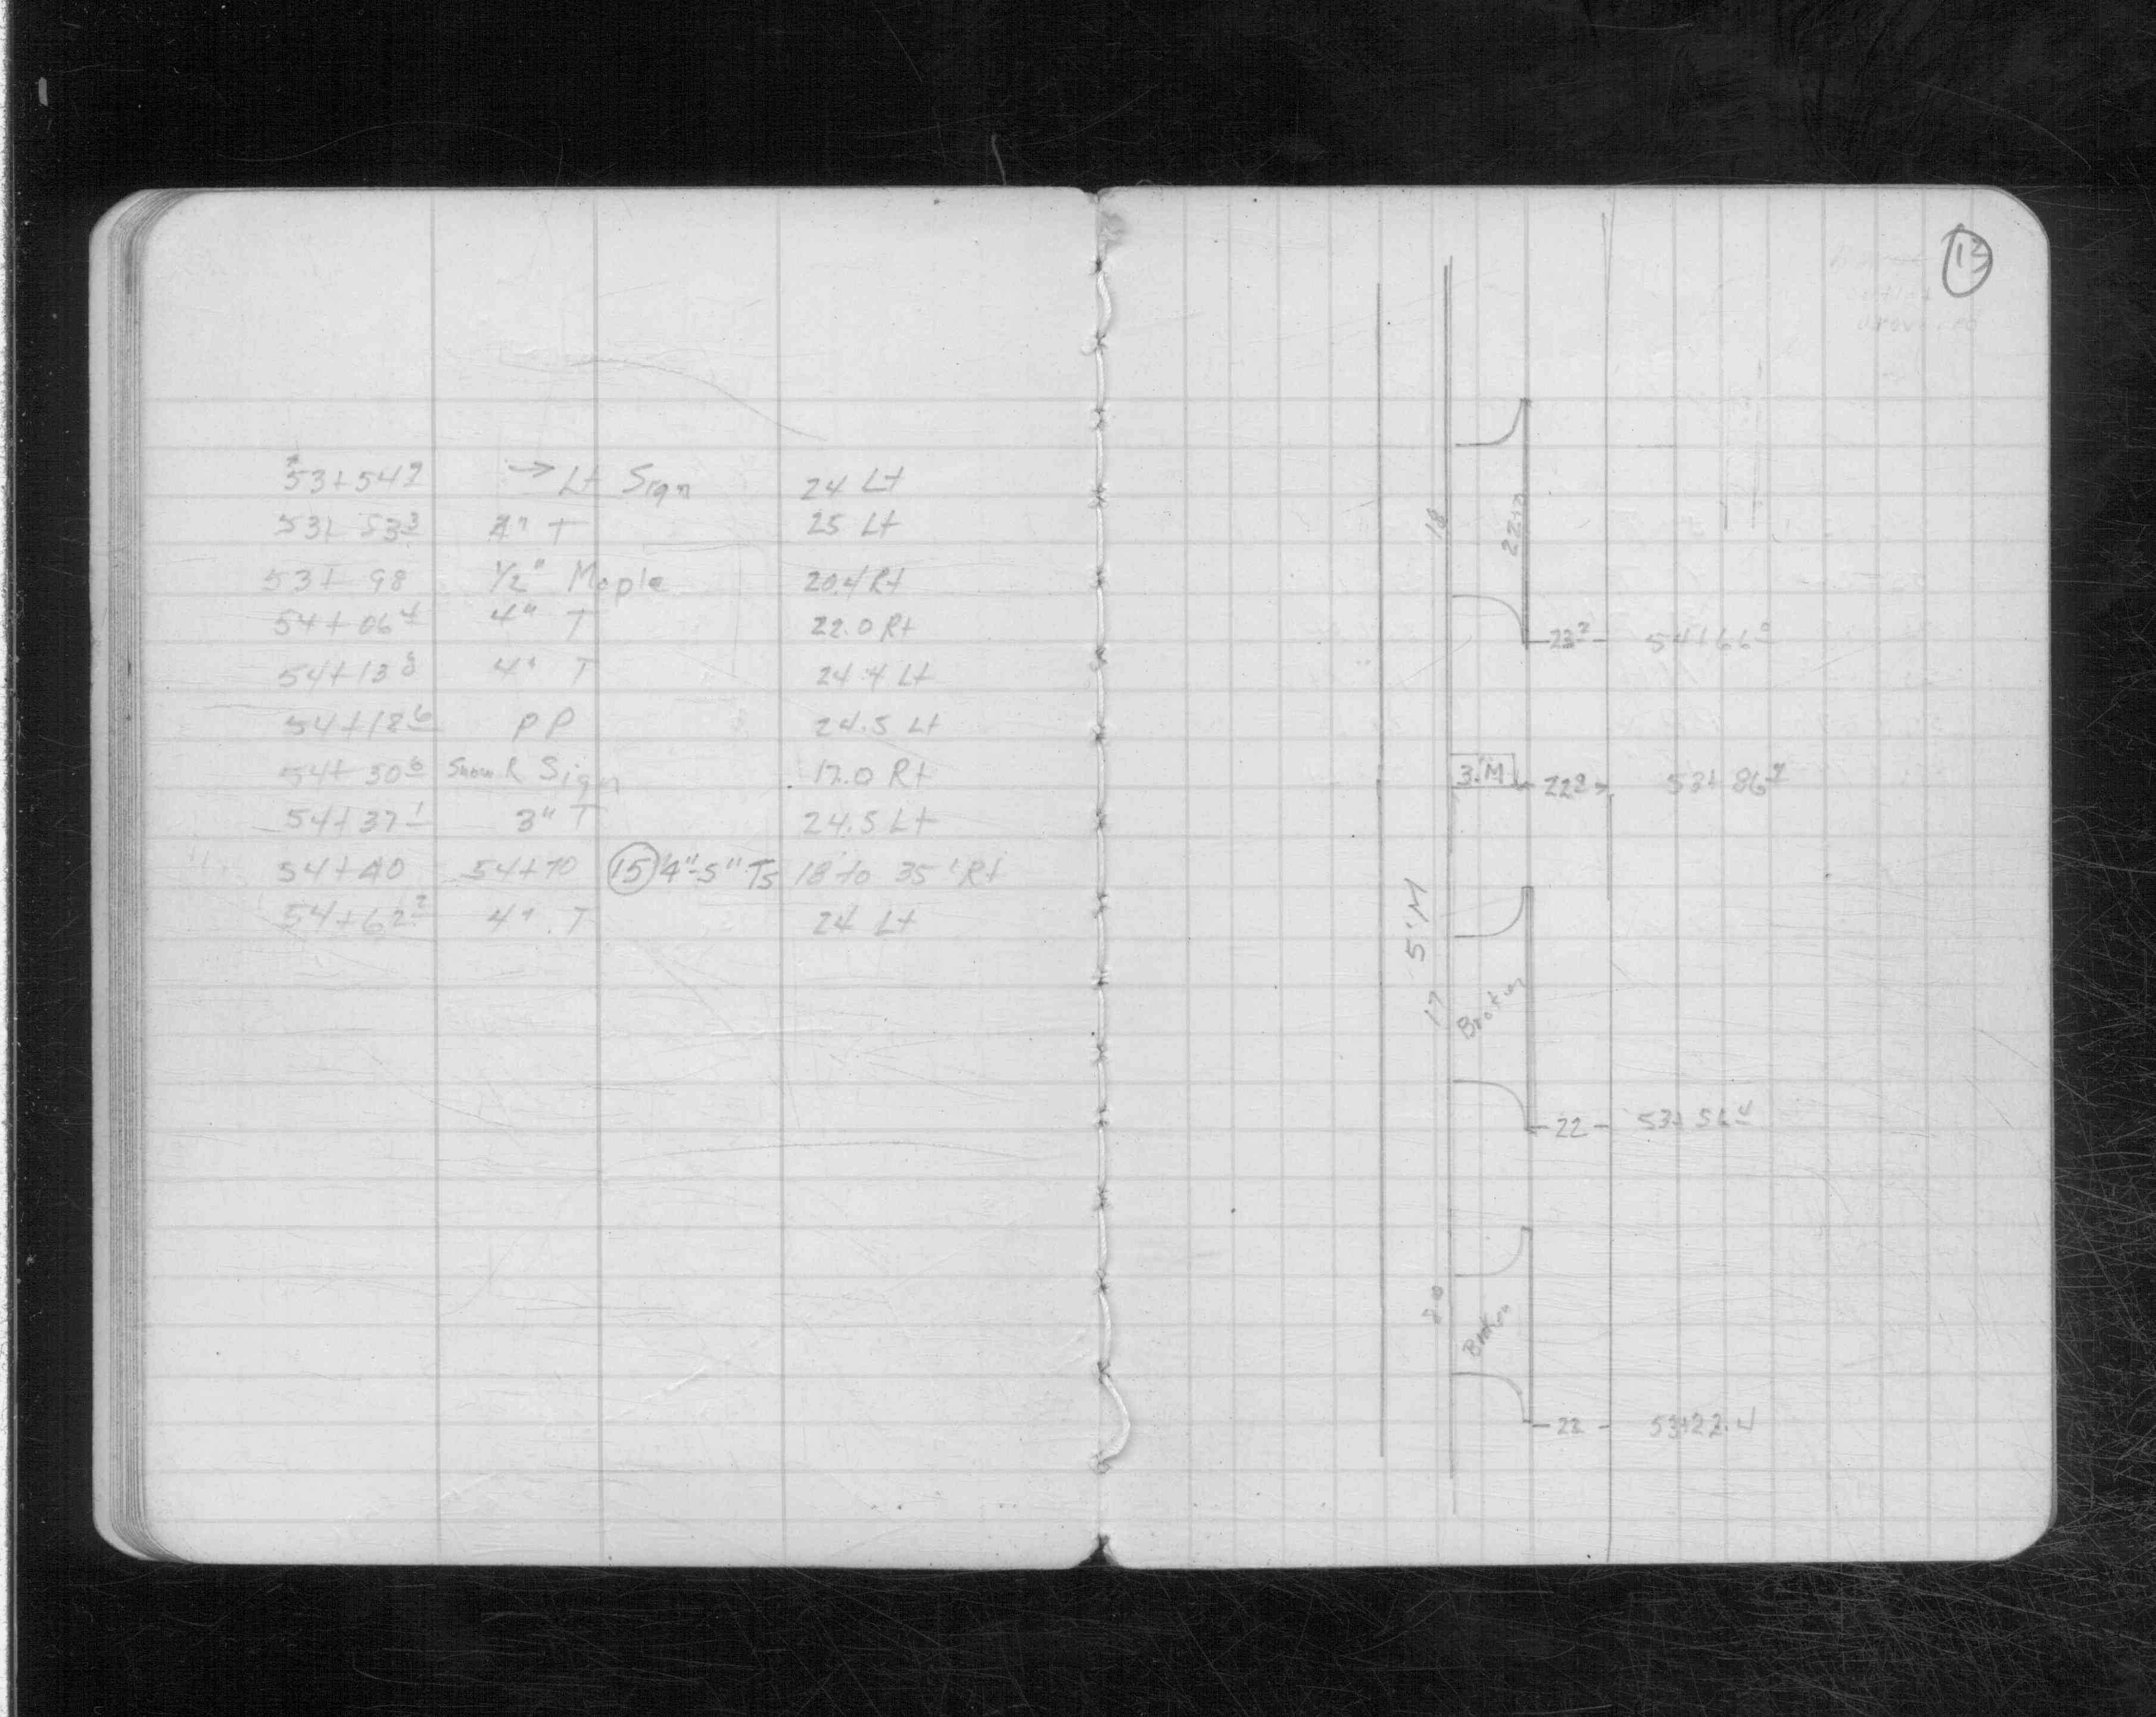 53+54⁹ → Lt Sign 24 Lt
53+53³ 4" T 25 Lt
53+98 1/2" Maple 20.4 Rt
54+06⁴ 4" T 22.0 Rt
54+13⁸ 4" T 24.4 Lt
54+18⁶ PP 24.5 Lt
54+30⁶ R Sign 17.0 Rt
54+37¹ 3" T 24.5 Lt
54+40 54+70 15 4"-5" Ts 18 to 35' Rt
54+62² 4" T 24 Lt
13
18
23² 54+66⁰
3.M 22⁹ 53+86⁹
5'M
17
22 53+56⁴
20
22 53+22.4